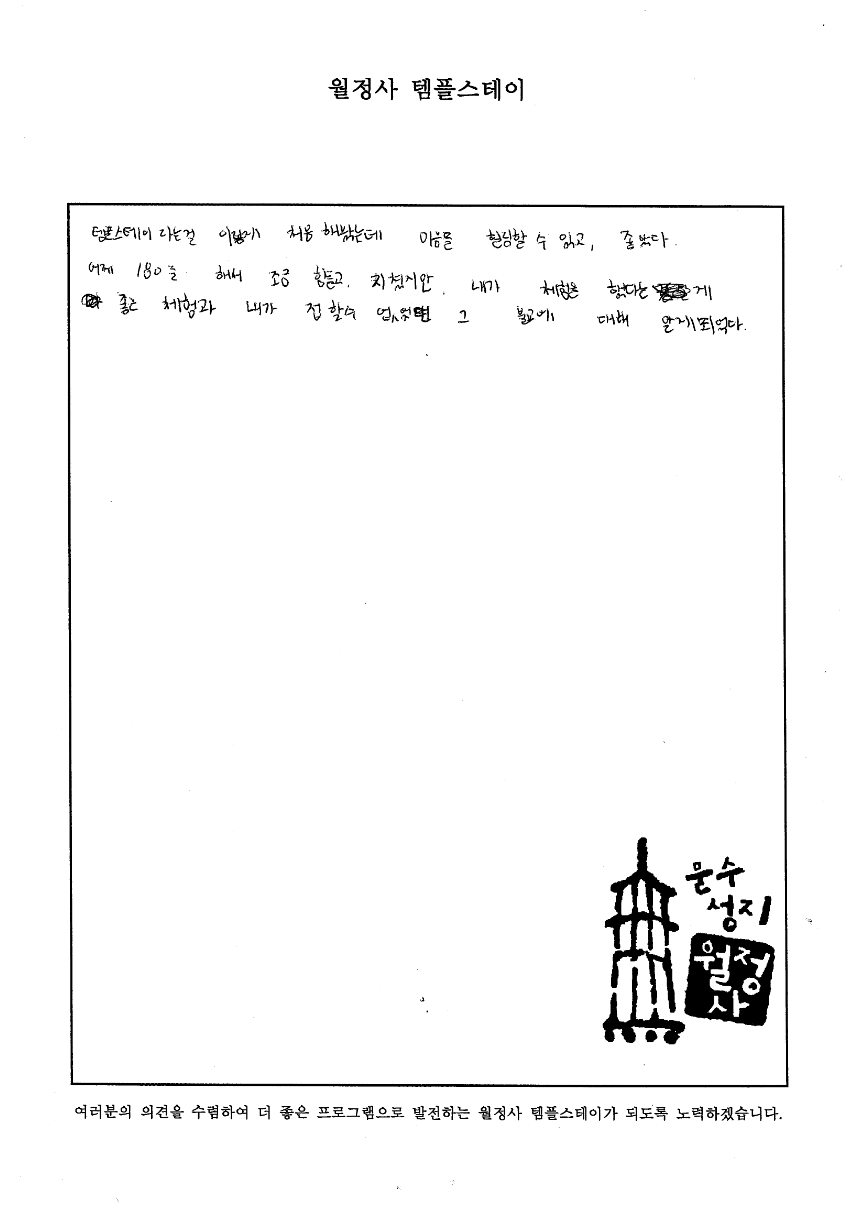 월정사 템플스테이
템플스테이 라는걸 처음 해봤는데 마음을 힐링할 수 있고, 좋았다.
어제 180 해서 조금 힘들고, 지쳤지만, 내가 체험은 했다는 게
좋은 체험과 내가 접 할수 없었던 그 불교에 대해 알게되었다.
문수
성지
월정
사
여러분의 의견을 수렴하여 더 좋은 프로그램으로 발전하는 월정사 템플스테이가 되도록 노력하겠습니다.